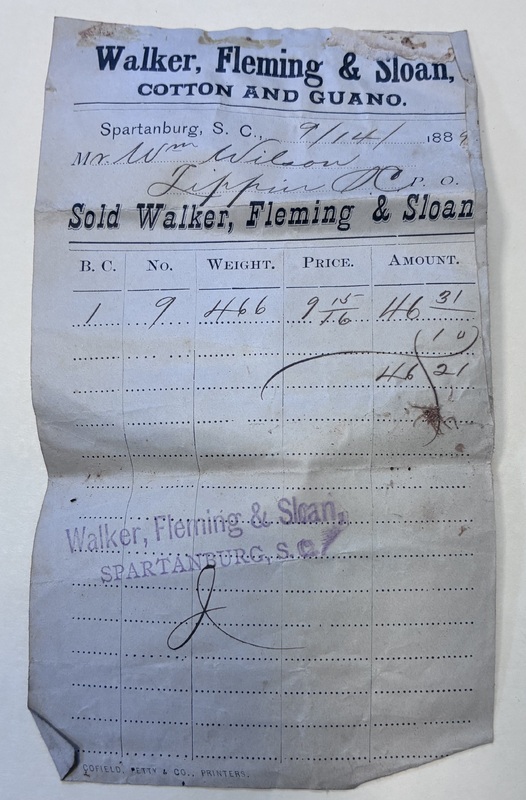 Walker, Fleming & Sloan,
COTTON AND GUANO.
Spartanburg, S. C., 9/14/ 1889
Mr. Wm Wilson
Tippin SC P. O.
Sold Walker, Fleming & Sloan
B. C. No. WEIGHT. PRICE. AMOUNT.
1 9 466 9 15/16 46 31
10
46 21
Walker, Fleming & Sloan,
SPARTANBURG, S. C.
COFIELD, PETTY & CO., PRINTERS.